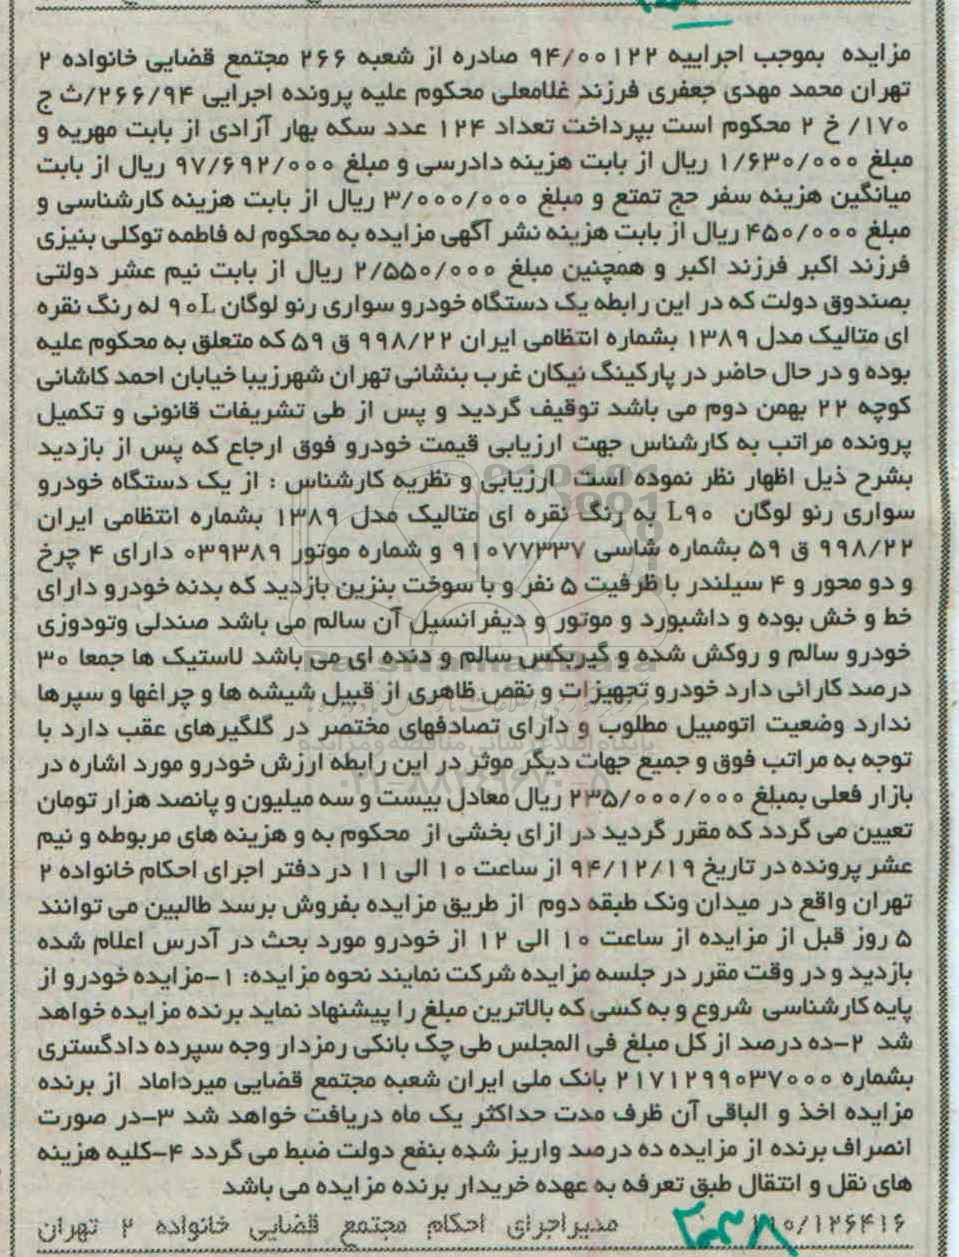 مزایده بموجب اجراییه ۹۴/۰۰۱۲۲ صادره از شعبه ۲۶۶ مجتمع قضایی خانواده ۲
تهران محمد مهدی جعفری فرزند غلامعلی محکوم علیه پرونده اجرایی ۲۶۶/۹۴/ث ج
۱۷۰/ خ ۲ محکوم است بپرداخت تعداد ۱۲۴ عدد سکه بهار آزادی از بابت مهریه و
مبلغ ۱/۶۳۰/۰۰۰ ریال از بابت هزینه دادرسی و مبلغ ۹۷/۶۹۲/۰۰۰ ریال از بابت
میانگین هزینه سفر حج تمتع و مبلغ ۳/۰۰۰/۰۰۰ ریال از بابت هزینه کارشناسی و
مبلغ ۴۵۰/۰۰۰ ریال از بابت هزینه نشر آگهی مزایده به محکوم له فاطمه توکلی بنیزی
فرزند اکبر فرزند اکبر و همچنین مبلغ ۲/۵۵۰/۰۰۰ ریال از بابت نیم عشر دولتی
بصندوق دولت که در این رابطه یک دستگاه خودرو سواری رنو لوگان ۹۰L له رنگ نقره
ای متالیک مدل ۱۳۸۹ بشماره انتظامی ایران ۹۹۸/۲۲ ق ۵۹ که متعلق به محکوم علیه
بوده و در حال حاضر در پارکینگ نیکان غرب بنشانی تهران شهرزیبا خیابان احمد کاشانی
کوچه ۲۲ بهمن دوم می باشد توقیف گردید و پس از طی تشریفات قانونی و تکمیل
پرونده مراتب به کارشناس جهت ارزیابی قیمت خودرو فوق ارجاع که پس از بازدید
بشرح ذیل اظهار نظر نموده است ارزیابی و نظریه کارشناس : از یک دستگاه خودرو
سواری رنو لوگان L۹۰ به رنگ نقره ای متالیک مدل ۱۳۸۹ بشماره انتظامی ایران
۹۹۸/۲۲ ق ۵۹ بشماره شاسی ۹۱۰۷۷۳۳۷ و شماره موتور ۰۳۹۳۸۹ دارای ۴ چرخ
و دو محور و ۴ سیلندر با ظرفیت ۵ نفر و با سوخت بنزین بازدید که بدنه خودرو دارای
خط و خش بوده و داشبورد و موتور و دیفرانسیل آن سالم می باشد صندلی وتودوزی
خودرو سالم و روکش شده و گیربکس سالم و دنده ای می باشد لاستیک ها جمعا ۳۰
درصد کارائی دارد خودرو تجهیزات و نقص ظاهری از قبیل شیشه ها و چراغها و سپرها
ندارد وضعیت اتومبیل مطلوب و دارای تصادفهای مختصر در گلگیرهای عقب دارد با
توجه به مراتب فوق و جمیع جهات دیگر موثر در این رابطه ارزش خودرو مورد اشاره در
بازار فعلی بمبلغ ۲۳۵/۰۰۰/۰۰۰ ریال معادل بیست و سه میلیون و پانصد هزار تومان
تعیین می گردد که مقرر گردید در ازای بخشی از محکوم به و هزینه های مربوطه و نیم
عشر پرونده در تاریخ ۹۴/۱۲/۱۹ از ساعت ۱۰ الی ۱۱ در دفتر اجرای احکام خانواده ۲
تهران واقع در میدان ونک طبقه دوم از طریق مزایده بفروش برسد طالبین می توانند
۵ روز قبل از مزایده از ساعت ۱۰ الی ۱۲ از خودرو مورد بحث در آدرس اعلام شده
بازدید و در وقت مقرر در جلسه مزایده شرکت نمایند نحوه مزایده: ۱-مزایده خودرو از
پایه کارشناسی شروع و به کسی که بالاترین مبلغ را پیشنهاد نماید برنده مزایده خواهد
شد ۲-ده درصد از کل مبلغ فی المجلس طی چک بانکی رمزدار وجه سپرده دادگستری
بشماره ۲۱۷۱۲۹۹۰۳۷۰۰۰ بانک ملی ایران شعبه مجتمع قضایی میرداماد از برنده
مزایده اخذ و الباقی آن ظرف مدت حداکثر یک ماه دریافت خواهد شد ۳-در صورت
انصراف برنده از مزایده ده درصد واریز شده بنفع دولت ضبط می گردد ۴-کلیه هزینه
های نقل و انتقال طبق تعرفه به عهده خریدار برنده مزایده می باشد
۱۱۰/۱۲۶۴۱۶ مدیراجرای احکام مجتمع قضایی خانواده ۲ تهران